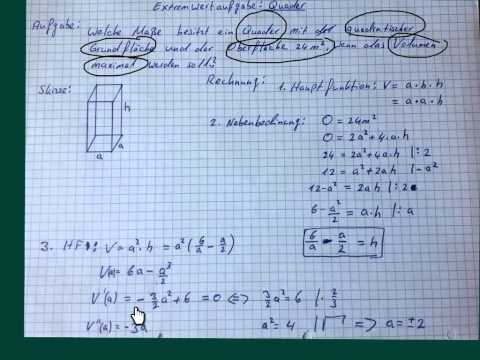 Extremwertaufgabe: Quader
Aufgabe: Welche Maße besitzt ein Quader mit der quadratischer
Grundfläche und der Oberfläche 24m², wenn das Volumen
maximal werden soll?
Skizze:
h
a
a
Rechnung:
1. Hauptfunktion: V = a·b·h
= a·a·h
2. Nebenbedingung: O = 24m²
O = 2a² + 4·a·h
24 = 2a² + 4a·h |:2
12 = a² + 2ah |-a²
12-a² = 2ah |:2
6 - a²/2 = a·h |:a
6/a - a/2 = h
3. HF: V = a²·h = a²(6/a - a/2)
V(a) = 6a - a³/2
V'(a) = -3/2a² + 6 = 0 <=> 3/2a² = 6 |·2/3
V''(a) = -3a
a² = 4 |√ => a = ±2